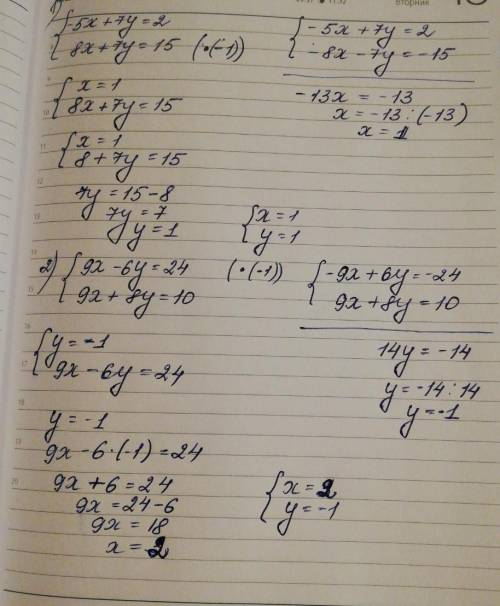 1) { -5x+7y=2
8x+7y=15 (·(-1))
{ -5x+7y=2
-8x-7y=-15
-13x=-13
x=-13:(-13)
x=1
{ x=1
8x+7y=15
{ x=1
8+7y=15
7y=15-8
7y=7
y=1
{ x=1
y=1
2) { 9x-6y=24 (·(-1))
9x+8y=10
{ -9x+6y=-24
9x+8y=10
14y=-14
y=-14:14
y=-1
{ y=-1
9x-6y=24
y=-1
9x-6·(-1)=24
9x+6=24
9x=24-6
9x=18
x=2
{ x=2
y=-1
вторник